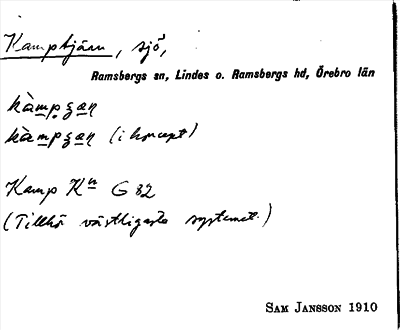 Kamptjärn, sjö,
Ramsbergs sn, Lindes o. Ramsbergs hd, Örebro län
kàmpʒan
kàmpʒan (i koncept)
Kamp Kn G 82
(Tillhö västligaste systemet.)
SAM JANSSON 1910